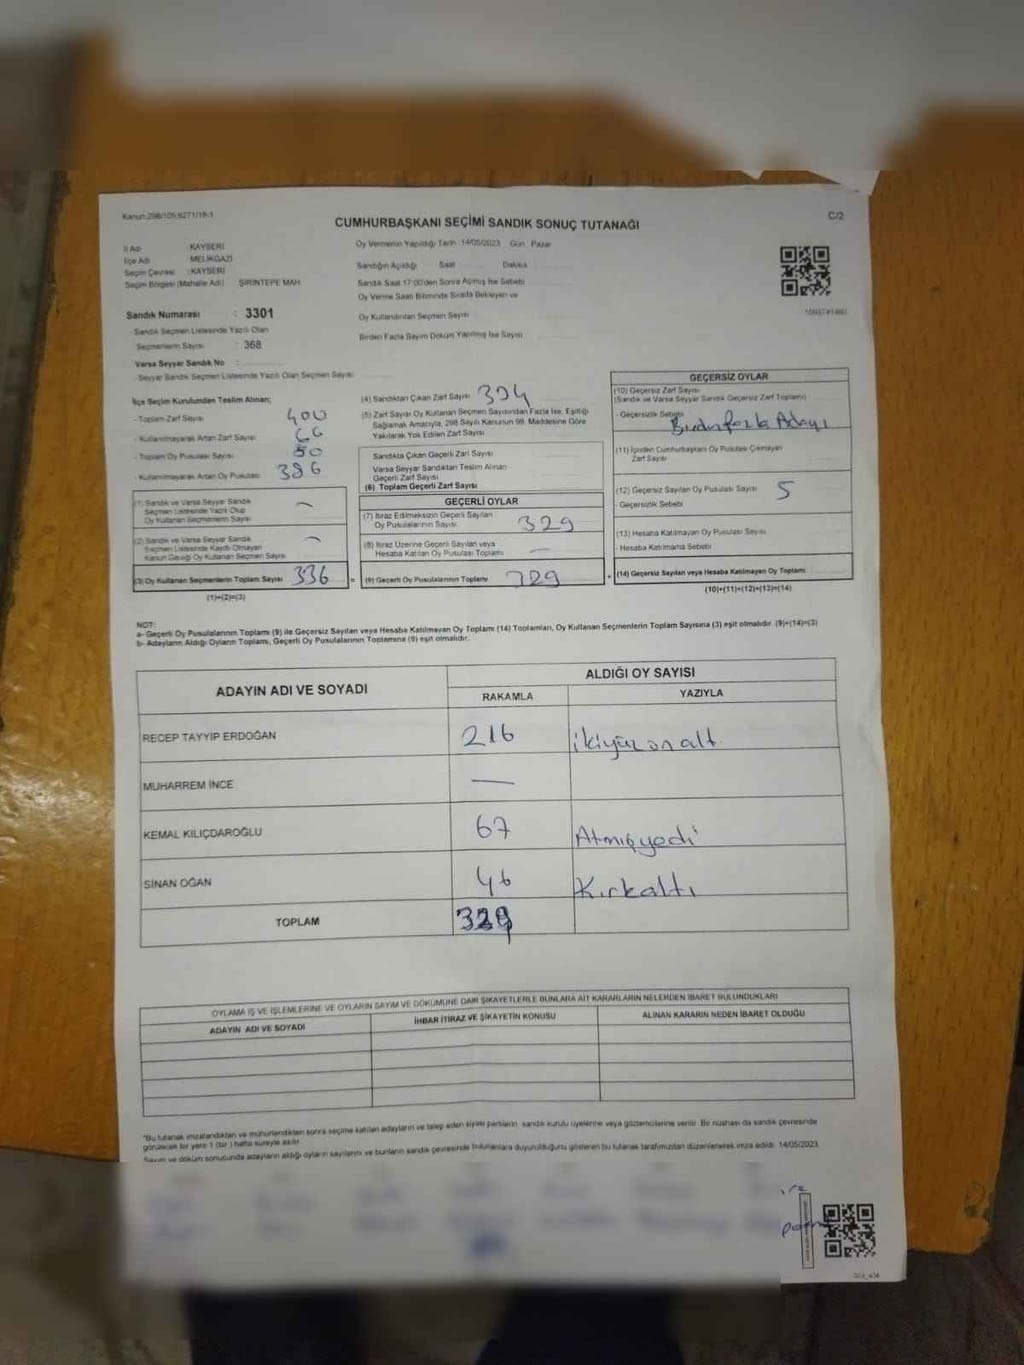 Kanun:298/105;6271/18-1
C/2
CUMHURBAŞKANI SEÇİMİ SANDIK SONUÇ TUTANAĞI
İl Adı : KAYSERİ
İlçe Adı : MELİKGAZİ
Seçim Çevresi : KAYSERİ
Seçim Bölgesi (Mahalle Adı) ŞİRİNTEPE MAH
Sandık Numarası : 3301
- Sandık Seçmen Listesinde Yazılı Olan
Seçmenlerin Sayısı : 368
Varsa Seyyar Sandık No :
- Seyyar Sandık Seçmen Listesinde Yazılı Olan Seçmen Sayısı
Oy Vermenin Yapıldığı Tarih :14/05/2023 Gün Pazar
Sandığın Açıldığı Saat Dakika
Sandık Saat 17:00'den Sonra Açmış İse Sebebi
Oy Verme Saati Bitiminde Sırada Bekleyen ve
Oy Kullandırılan Seçmen Sayısı
Birden Fazla Sayım Döküm Yapılmış İse Sayısı
İlçe Seçim Kurulundan Teslim Alınan;
- Toplam Zarf Sayısı 400
- Kullanılmayarak Artan Zarf Sayısı 66
- Toplam Oy Pusulası Sayısı
- Kullanılmayarak Artan Oy Pusulası 386
(1) Sandık ve Varsa Seyyar Sandık
Seçmen Listesinde Yazılı Olup
Oy Kullanan Seçmenlerin Sayısı
(2) Sandık ve Varsa Seyyar Sandık
Seçmen Listesinde Kayıtlı Olmayan
Kanun Gereği Oy Kullanan Seçmenlerin Sayısı
(3) Oy Kullanan Seçmenlerin Toplam Sayısı 336 =
(1)+(2)=(3)
(4) Sandıktan Çıkan Zarf Sayısı
(5) Zarf Sayısı Oy Kullanan Seçmen Sayısından Fazla İse, Eşitliği
Sağlamak Amacıyla, 298 Sayılı Kanunun 98. Maddesine Göre
Yakılarak Yok Edilen Zarf Sayısı
Sandıkta Çıkan Geçerli Zarf Sayısı
Varsa Seyyar Sandıktan Teslim Alınan
Geçerli Zarf Sayısı
(6) Toplam Geçerli Zarf Sayısı
GEÇERLİ OYLAR
(7) İtiraz Edilmeksizin Geçerli Sayılan
Oy Pusulalarının Sayısı 329
(8) İtiraz Üzerine Geçerli Sayılan veya
Hesaba Katılan Oy Pusulası Toplamı —
(9) Geçerli Oy Pusulalarının Toplamı 729 +
GEÇERSİZ OYLAR
(10) Geçersiz Zarf Sayısı
(Sandık ve Varsa Seyyar Sandık Geçersiz Zarf Toplamı)
- Geçersizlik Sebebi
(11) İçinden Cumhurbaşkanı Oy Pusulası Çıkmayan
Zarf Sayısı
(12) Geçersiz Sayılan Oy Pusulası Sayısı 5
- Geçersizlik Sebebi
(13) Hesaba Katılmayan Oy Pusulası Sayısı
- Hesaba Katılmama Sebebi
(14) Geçersiz Sayılan veya Hesaba Katılmayan Oy Toplamı
(10)+(11)+(12)+(13)=(14)
NOT:
a- Geçerli Oy Pusulalarının Toplamı (9) ile Geçersiz Sayılan veya Hesaba Katılmayan Oy Toplamı (14) Toplamları, Oy Kullanan Seçmenlerin Toplam Sayısına (3) eşit olmalıdır. (9)+(14)=(3)
b- Adayların Aldığı Oyların Toplamı, Geçerli Oy Pusulalarının Toplamına (9) eşit olmalıdır.
ADAYIN ADI VE SOYADI
ALDIĞI OY SAYISI
RAKAMLA YAZIYLA
RECEP TAYYİP ERDOĞAN 216 ikiyüz on altı
MUHARREM İNCE —
KEMAL KILIÇDAROĞLU 67 Atmışyedi
SİNAN OĞAN 46 Kırkaltı
TOPLAM 329
OYLAMA İŞ VE İŞLEMLERİNE VE OYLARIN SAYIM VE DÖKÜMÜNE DAİR ŞİKAYETLERLE BUNLARA AİT KARARLARIN NELERDEN İBARET BULUNDUKLARI
ADAYIN ADI VE SOYADI İHBAR İTİRAZ VE ŞİKAYETİN KONUSU ALINAN KARARIN NEDEN İBARET OLDUĞU
"Bu tutanak imzalandıktan ve mühürlendikten sonra seçime katılan adayların ve talep eden siyasi partilerin sandık kurulu üyelerine veya gözlemcilerine verilir. Bir nüshası da sandık çevresinde
görülecek bir yere 1 (bir ) hafta süreyle asılır.
Sayım ve döküm sonucunda adayların aldığı oyların sayılarını ve bunların sandık çevresinde bulunanlara duyurulduğunu gösteren bu tutanak tarafımızdan düzenlenerek imza edildi. 14/05/2023